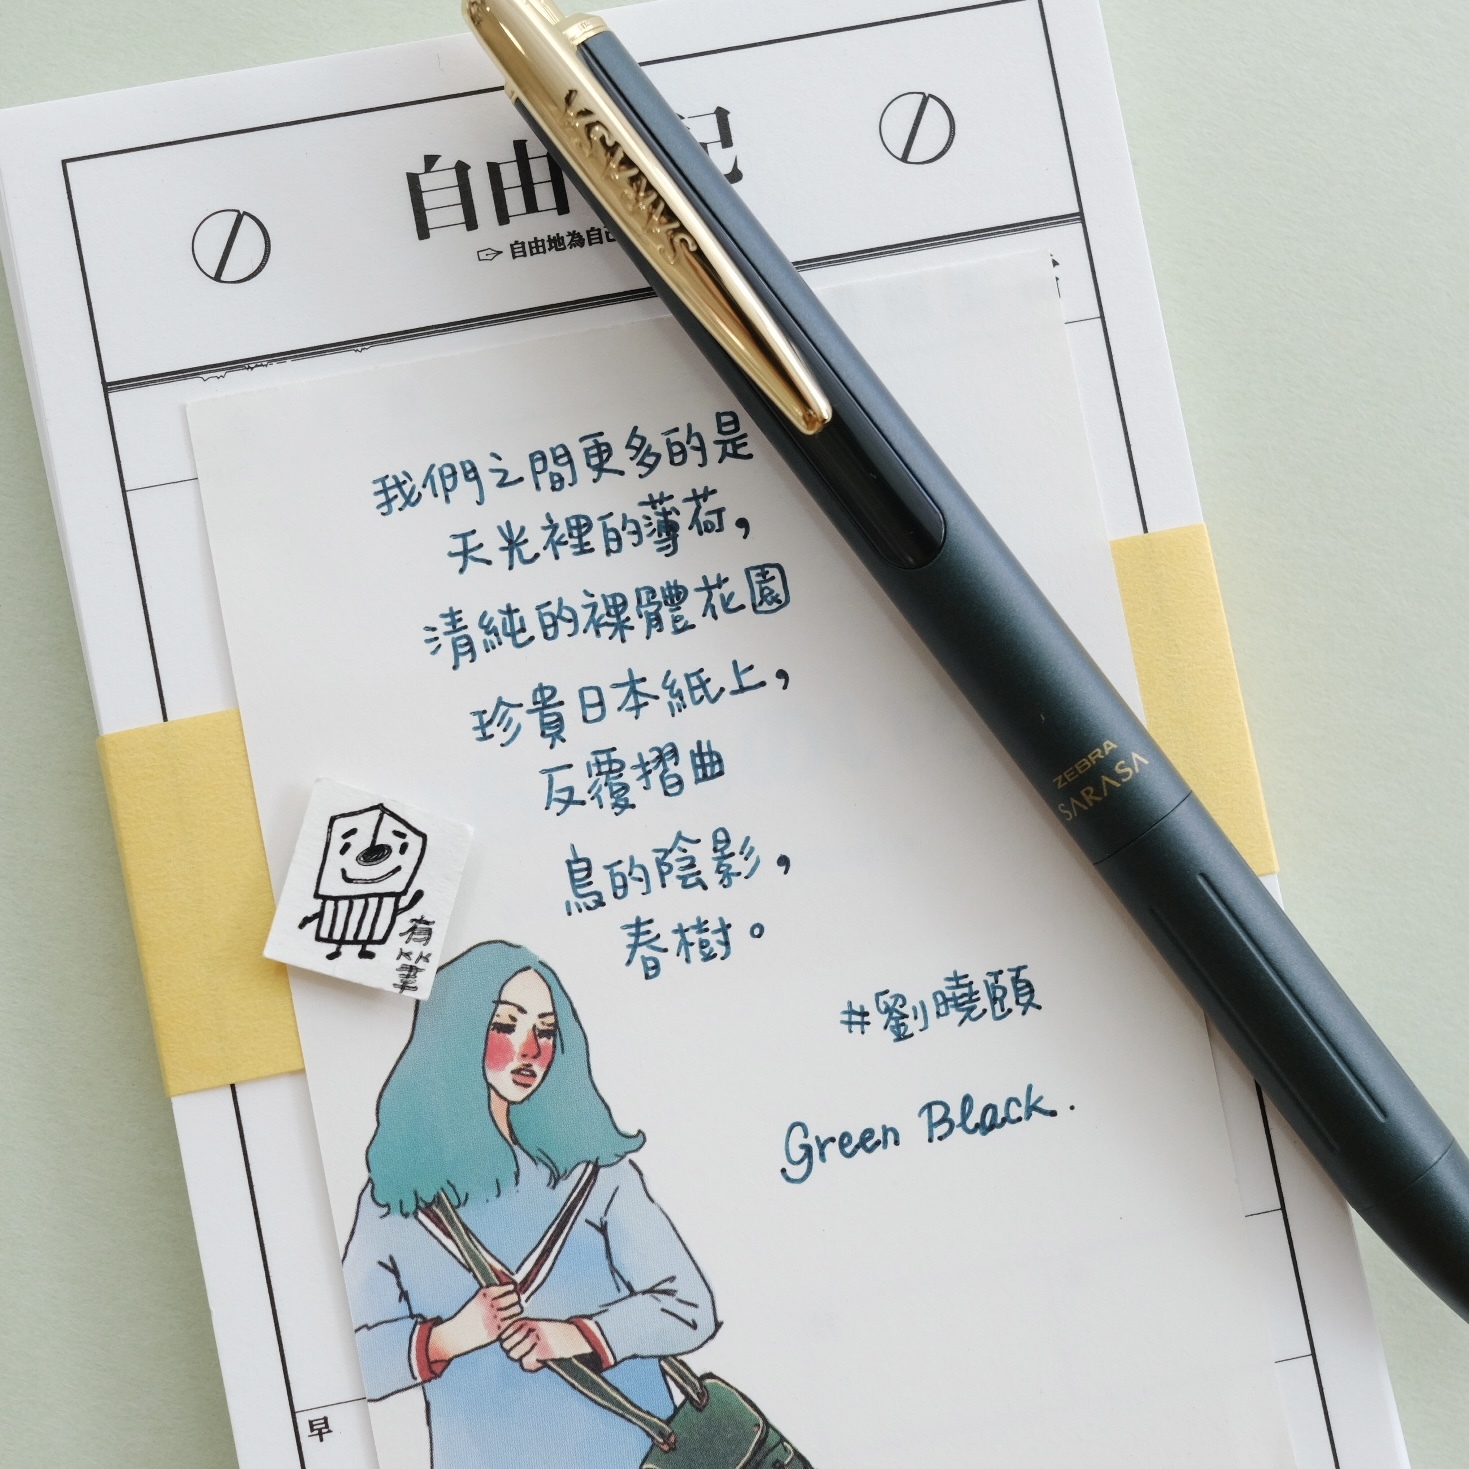 自由
記
自由地為自己
SARASA
我們之間更多的是
天光裡的薄荷，
清純的裸體花園
珍貴日本紙上，
反覆摺曲
鳥的陰影，
春樹。
#劉曉頤
Green Black.
ZEBRA
SARASA
有
筆
早